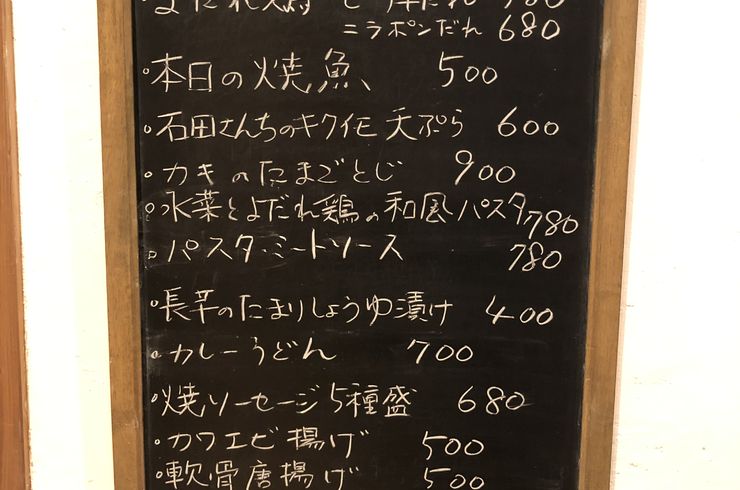 よだれ鶏
ニラポンだれ 680
・本日の焼魚、 500
・石田さんちのキクイモ天ぷら 600
・カキのたまごとじ 900
・水菜とよだれ鶏の和風パスタ 780
・パスタ・ミートソース 780
・長芋のたまりしょうゆ漬け 400
・カレーうどん 700
・焼ソーセージ5種盛 680
・カワエビ揚げ 500
・軟骨唐揚げ 500